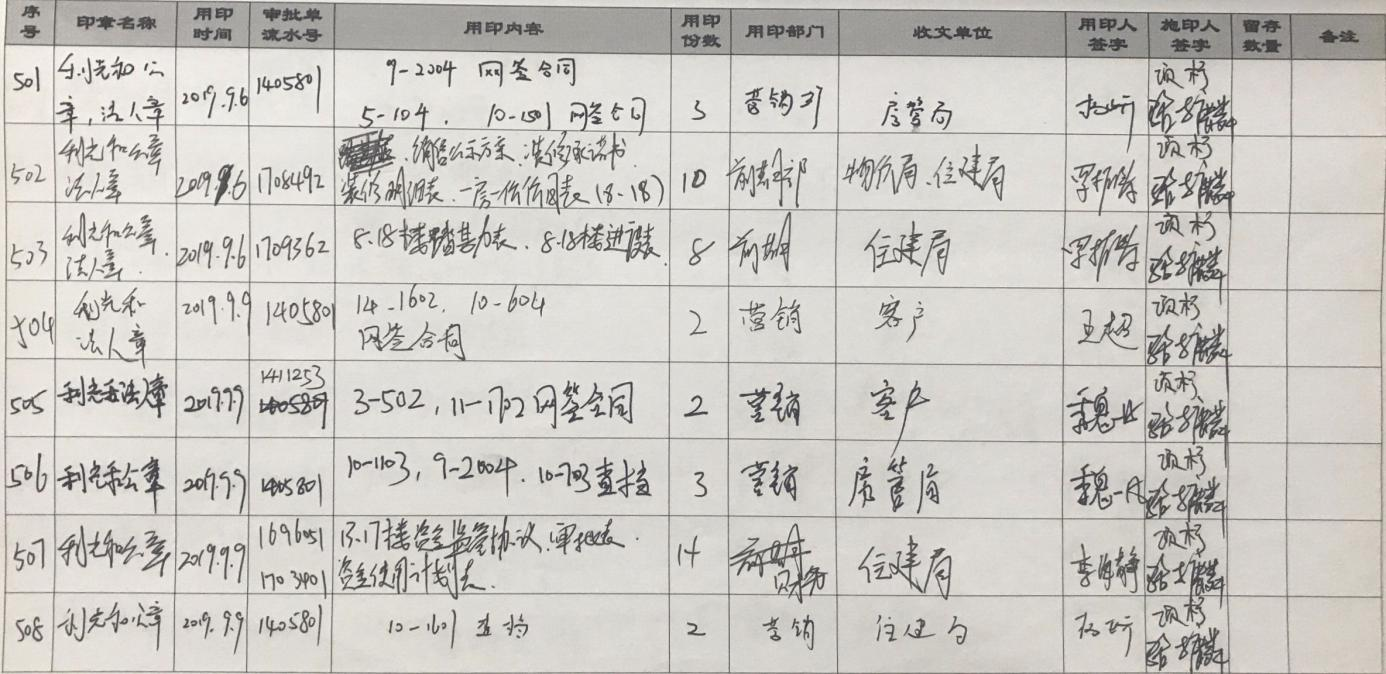 序号 印章名称 用印时间 审批单流水号 用印内容 用印份数 用印部门 收文单位 用印人签字 施印人签字 留存数量 备注
501 利光和公章,法人章 2019.9.6 1405801 9-2004 网签合同 5-104, 10-1501 网签合同 3 营销部 房管局 项杉
502 利光和公章 法人章 2019.9.6 1708492 销售公示方案、装修承诺书 装修明细表、一房一价价目表(8-18) 10 前期部 物价局、住建局 项杉
503 利光和公章、法人章. 2019.9.6 1709362 8.18楼 8.18楼进度表 8 前期 住建局 项杉
504 利光和 法人章 2019.9.9 1405801 14-1602, 10-604 网签合同 2 营销 客户 王超 项杉
505 利光和法人章 2019.9.9 1411253 3-502, 11-1702 网签合同 2 营销 客户 项杉
506 利光和公章 2019.9.9 1405801 10-1103, 9-2004. 10-703 查档 3 营销 房管局 项杉
507 利光和公章 2019.9.9 1696051 1703401 13.17楼资金监管协议、审批表. 资金使用计划表. 14 前期 财务 住建局 李海静 项杉
508 利光和公章 2019.9.9 1405801 10-1601 查档 2 营销 住建局 项杉